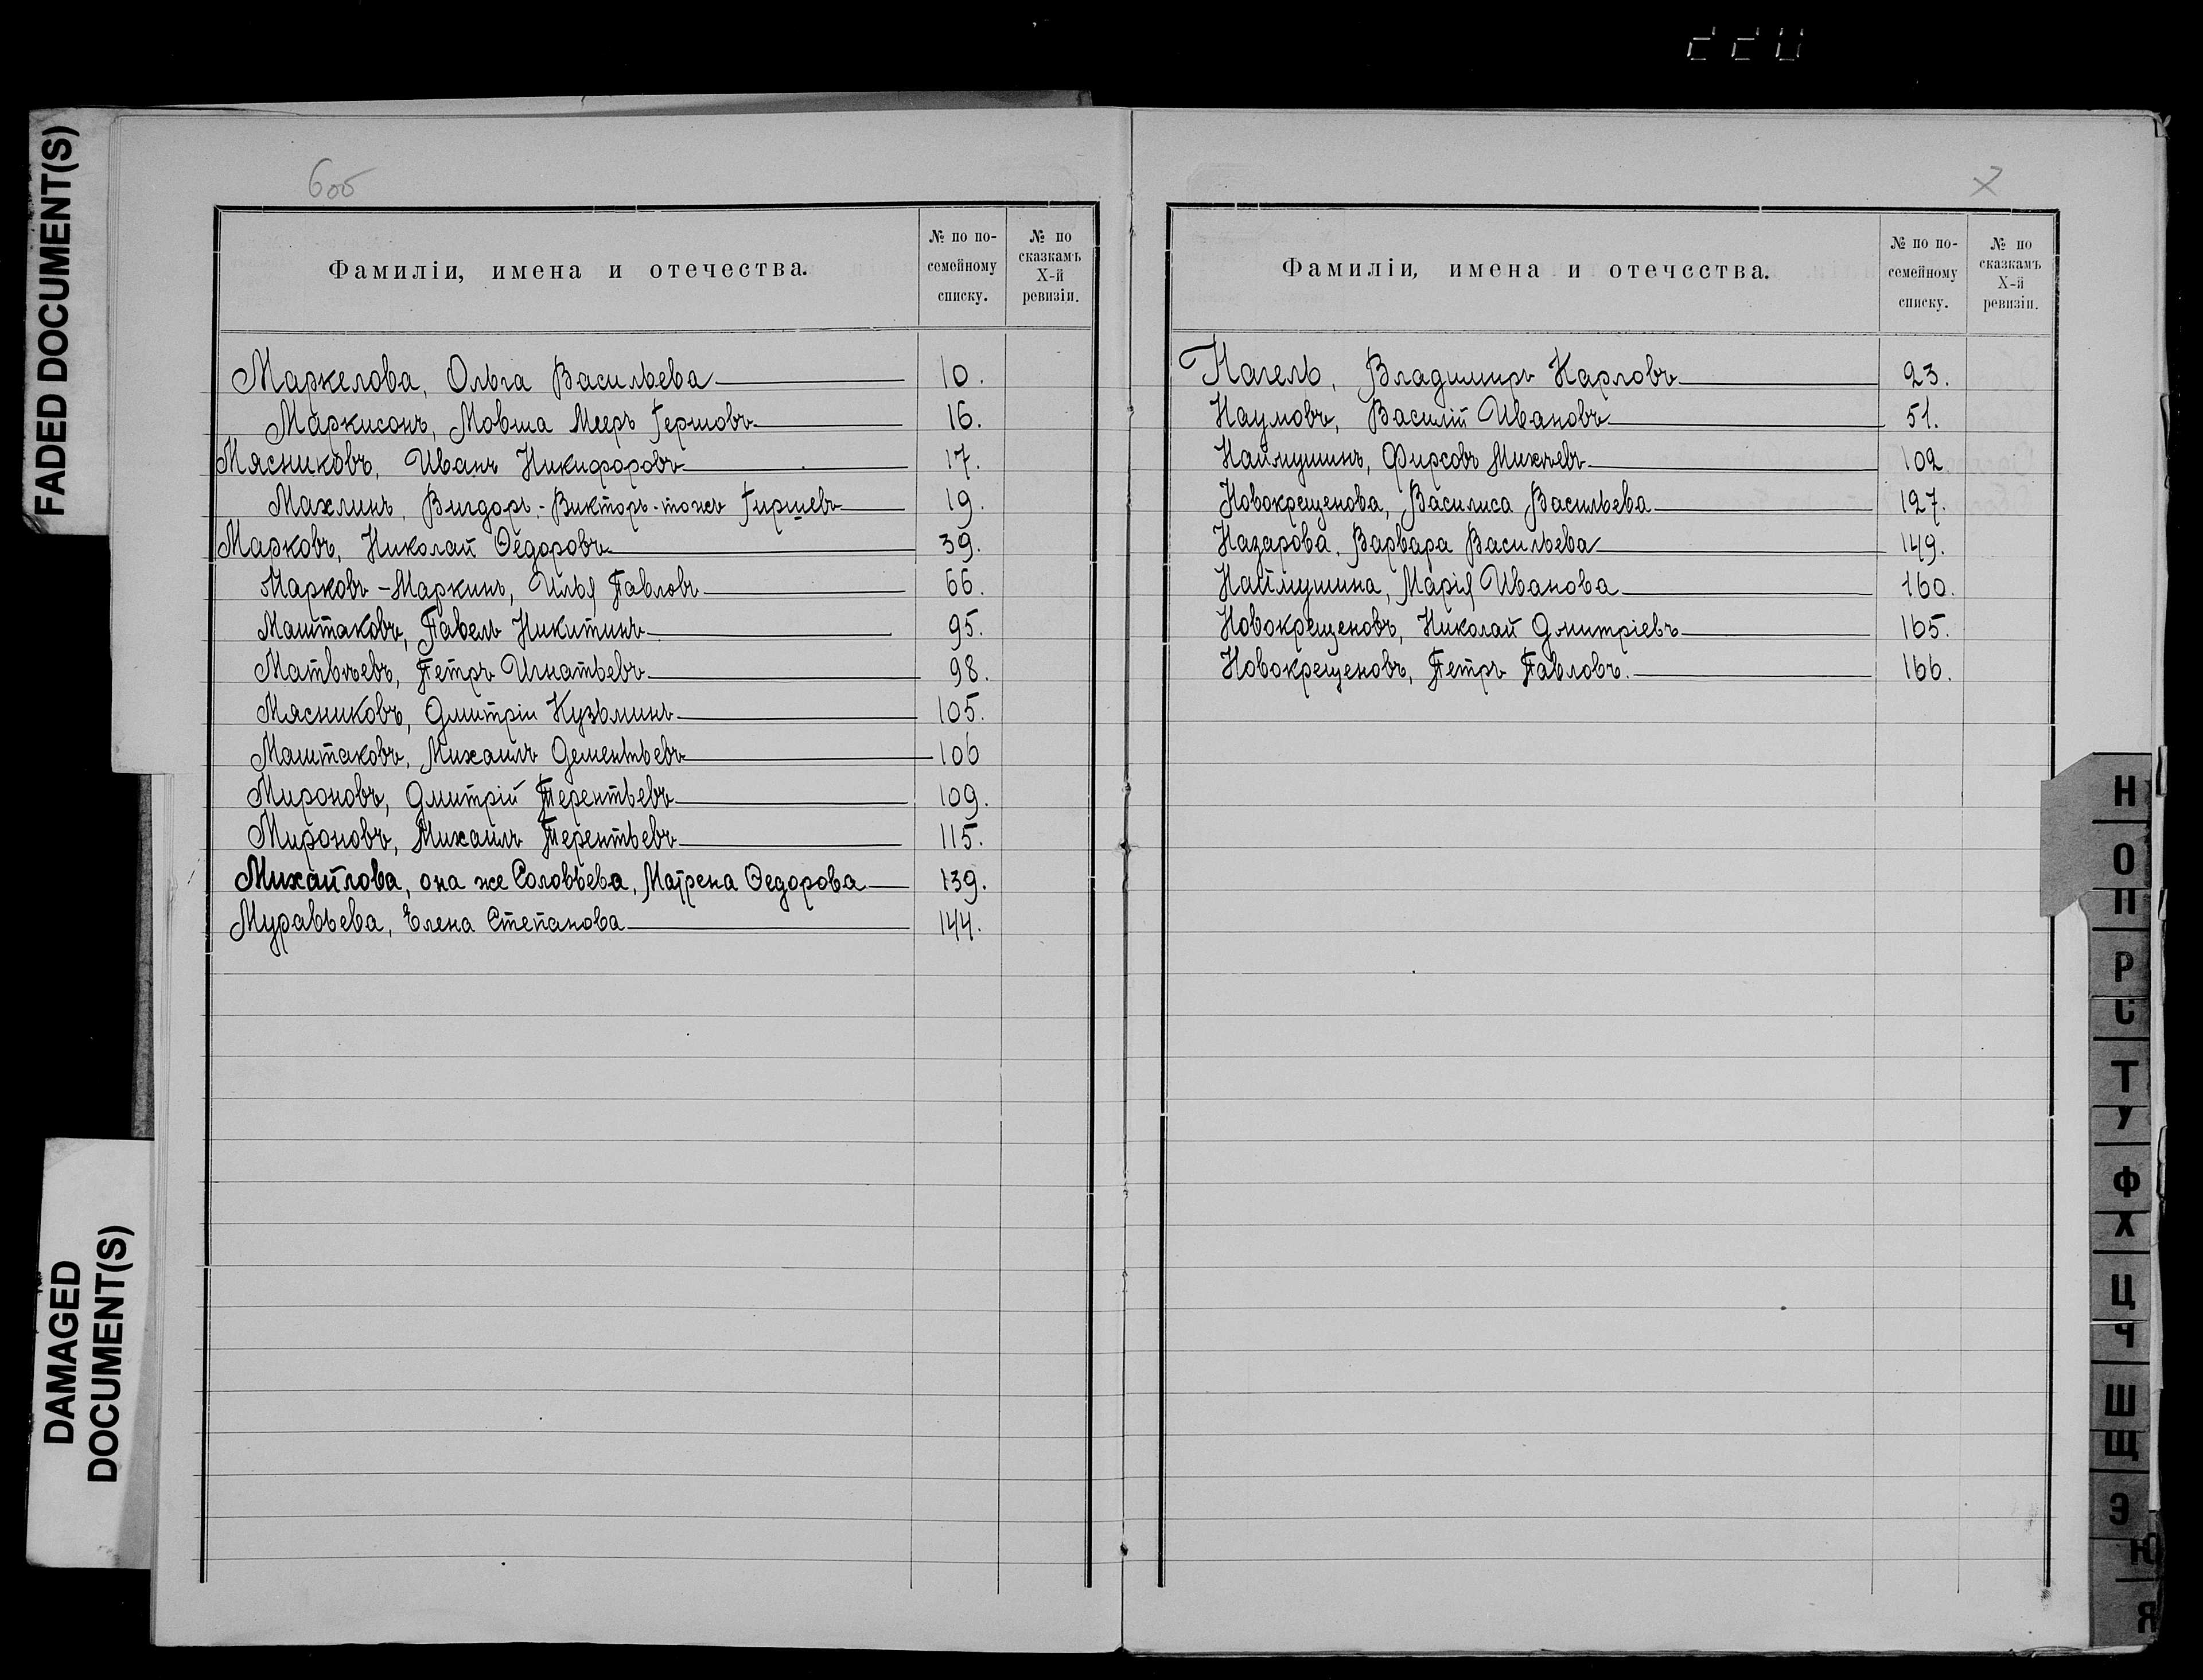 FADED DOCUMENT(S)
DAMAGED
DOCUMENT(S)
6об
Фамиліи, имена и отечества.
№ по по-
семейному
списку.
№ по
сказкамъ
X-й
ревизіи.
Маркелова, Ольга Васильева 10.
Маркисонъ, Мовша Мееръ Гершовъ 16.
Мясниковъ, Иванъ Никифоровъ 17.
Махлинъ, Вигдоръ-Викторъ-тожъ Гиршевъ 19.
Марковъ, Николай Ѳедоровъ 39.
Марковъ-Маркинъ, Илья Павловъ 66.
Маштаковъ, Павелъ Никитинъ 95.
Матвѣевъ, Петръ Игнатьевъ 98.
Мясниковъ, Дмитріи Кузьминъ 105.
Маштаковъ, Михаилъ Дементьевъ 106
Мироновъ, Дмитрій Терентьевъ 109.
Мироновъ, Михаилъ Терентьевъ 115.
Михайлова, она же Соловьева, Матрена Ѳедорова 139.
Муравьева, Елена Степанова 144.
Фамиліи, имена и отечества.
№ по по-
семейному
списку.
№ по
сказкамъ
X-й
ревизіи.
Нагель, Владимиръ Карловъ 23.
Наумовъ, Василій Ивановъ 51.
Наймушинъ, Фирсовъ Михѣевъ 102
Новокрещенова, Василиса Васильева 127.
Назарова, Варвара Васильева 149.
Наймушина, Марія Иванова 160.
Новокрещеновъ, Николай Дмитріевъ 165.
Новокрещеновъ, Петръ Павловъ. 166.
Н
О
П
Р
С
Т
У
Ф
Х
Ц
Ч
Ш
Щ
Э
Ю
Я